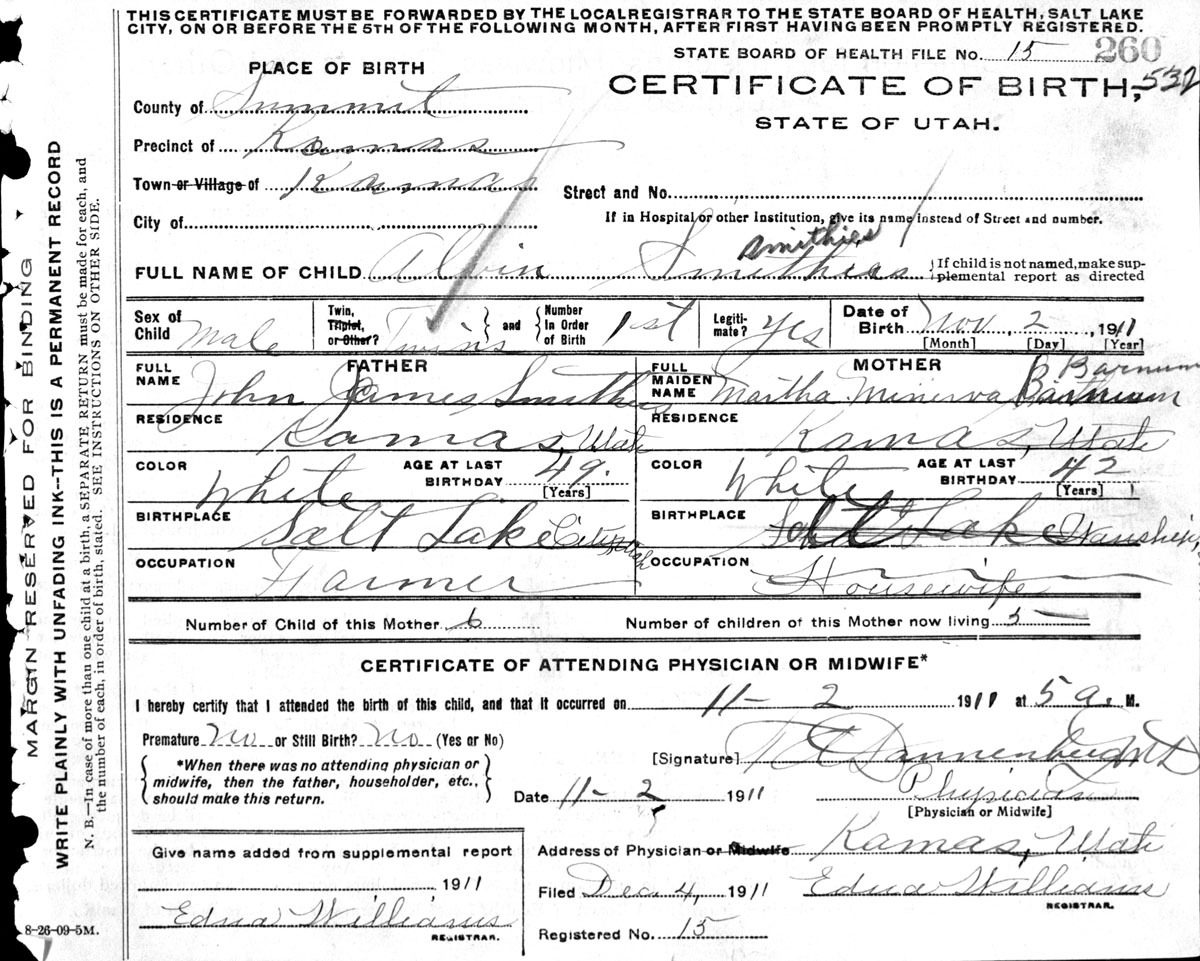 THIS CERTIFICATE MUST BE FORWARDED BY THE LOCAL REGISTRAR TO THE STATE BOARD OF HEALTH, SALT LAKE
CITY, ON OR BEFORE THE 5TH OF THE FOLLOWING MONTH, AFTER FIRST HAVING BEEN PROMPTLY REGISTERED.
STATE BOARD OF HEALTH FILE No. 15 260
PLACE OF BIRTH
CERTIFICATE OF BIRTH, 532
STATE OF UTAH.
County of Summit
Precinct of Kamas
Town or Village of Kamas
Street and No.
City of
If in Hospital or other Institution, give its name instead of Street and number.
Smithies
FULL NAME OF CHILD Alvin Smithies
If child is not named, make sup-
plemental report as directed
Sex of Child Male
Twin, Triplet, or Other? Twins
and Number In Order of Birth 1st
Legiti-mate? Yes
Date of Birth Nov, 2, 1911
[Month] [Day] [Year]
FATHER
FULL NAME John James Smithies
RESIDENCE Kamas, Utah
COLOR White
AGE AT LAST BIRTHDAY 49.
[Years]
BIRTHPLACE Salt Lake City, Utah
OCCUPATION Farmer
MOTHER
Barnum
FULL MAIDEN NAME Martha Minerva Barnum
RESIDENCE Kamas, Utah
COLOR White
AGE AT LAST BIRTHDAY 42
[Years]
BIRTHPLACE Salt Lake Wanship,
OCCUPATION Housewife
Number of Child of this Mother 6
Number of children of this Mother now living 5
CERTIFICATE OF ATTENDING PHYSICIAN OR MIDWIFE*
I hereby certify that I attended the birth of this child, and that it occurred on 11-2 1911 at 5 a. M.
Premature No or Still Birth? No (Yes or No)
*When there was no attending physician or
midwife, then the father, householder, etc.,
should make this return.
[Signature]
Date 11-2 1911
Physician
[Physician or Midwife]
Address of Physician or Midwife Kamas, Utah
Filed Dec 4, 1911 Edna Williams
REGISTRAR.
Registered No. 15
Give name added from supplemental report
1911
Edna Williams
REGISTRAR.
8-26-09-5M.
MARGIN RESERVED FOR BINDING
WRITE PLAINLY WITH UNFADING INK--THIS IS A PERMANENT RECORD
N. B.—In case of more than one child at a birth a SEPARATE RETURN must be made for each, and
the number of each, in order of birth, stated. SEE INSTRUCTIONS ON OTHER SIDE.